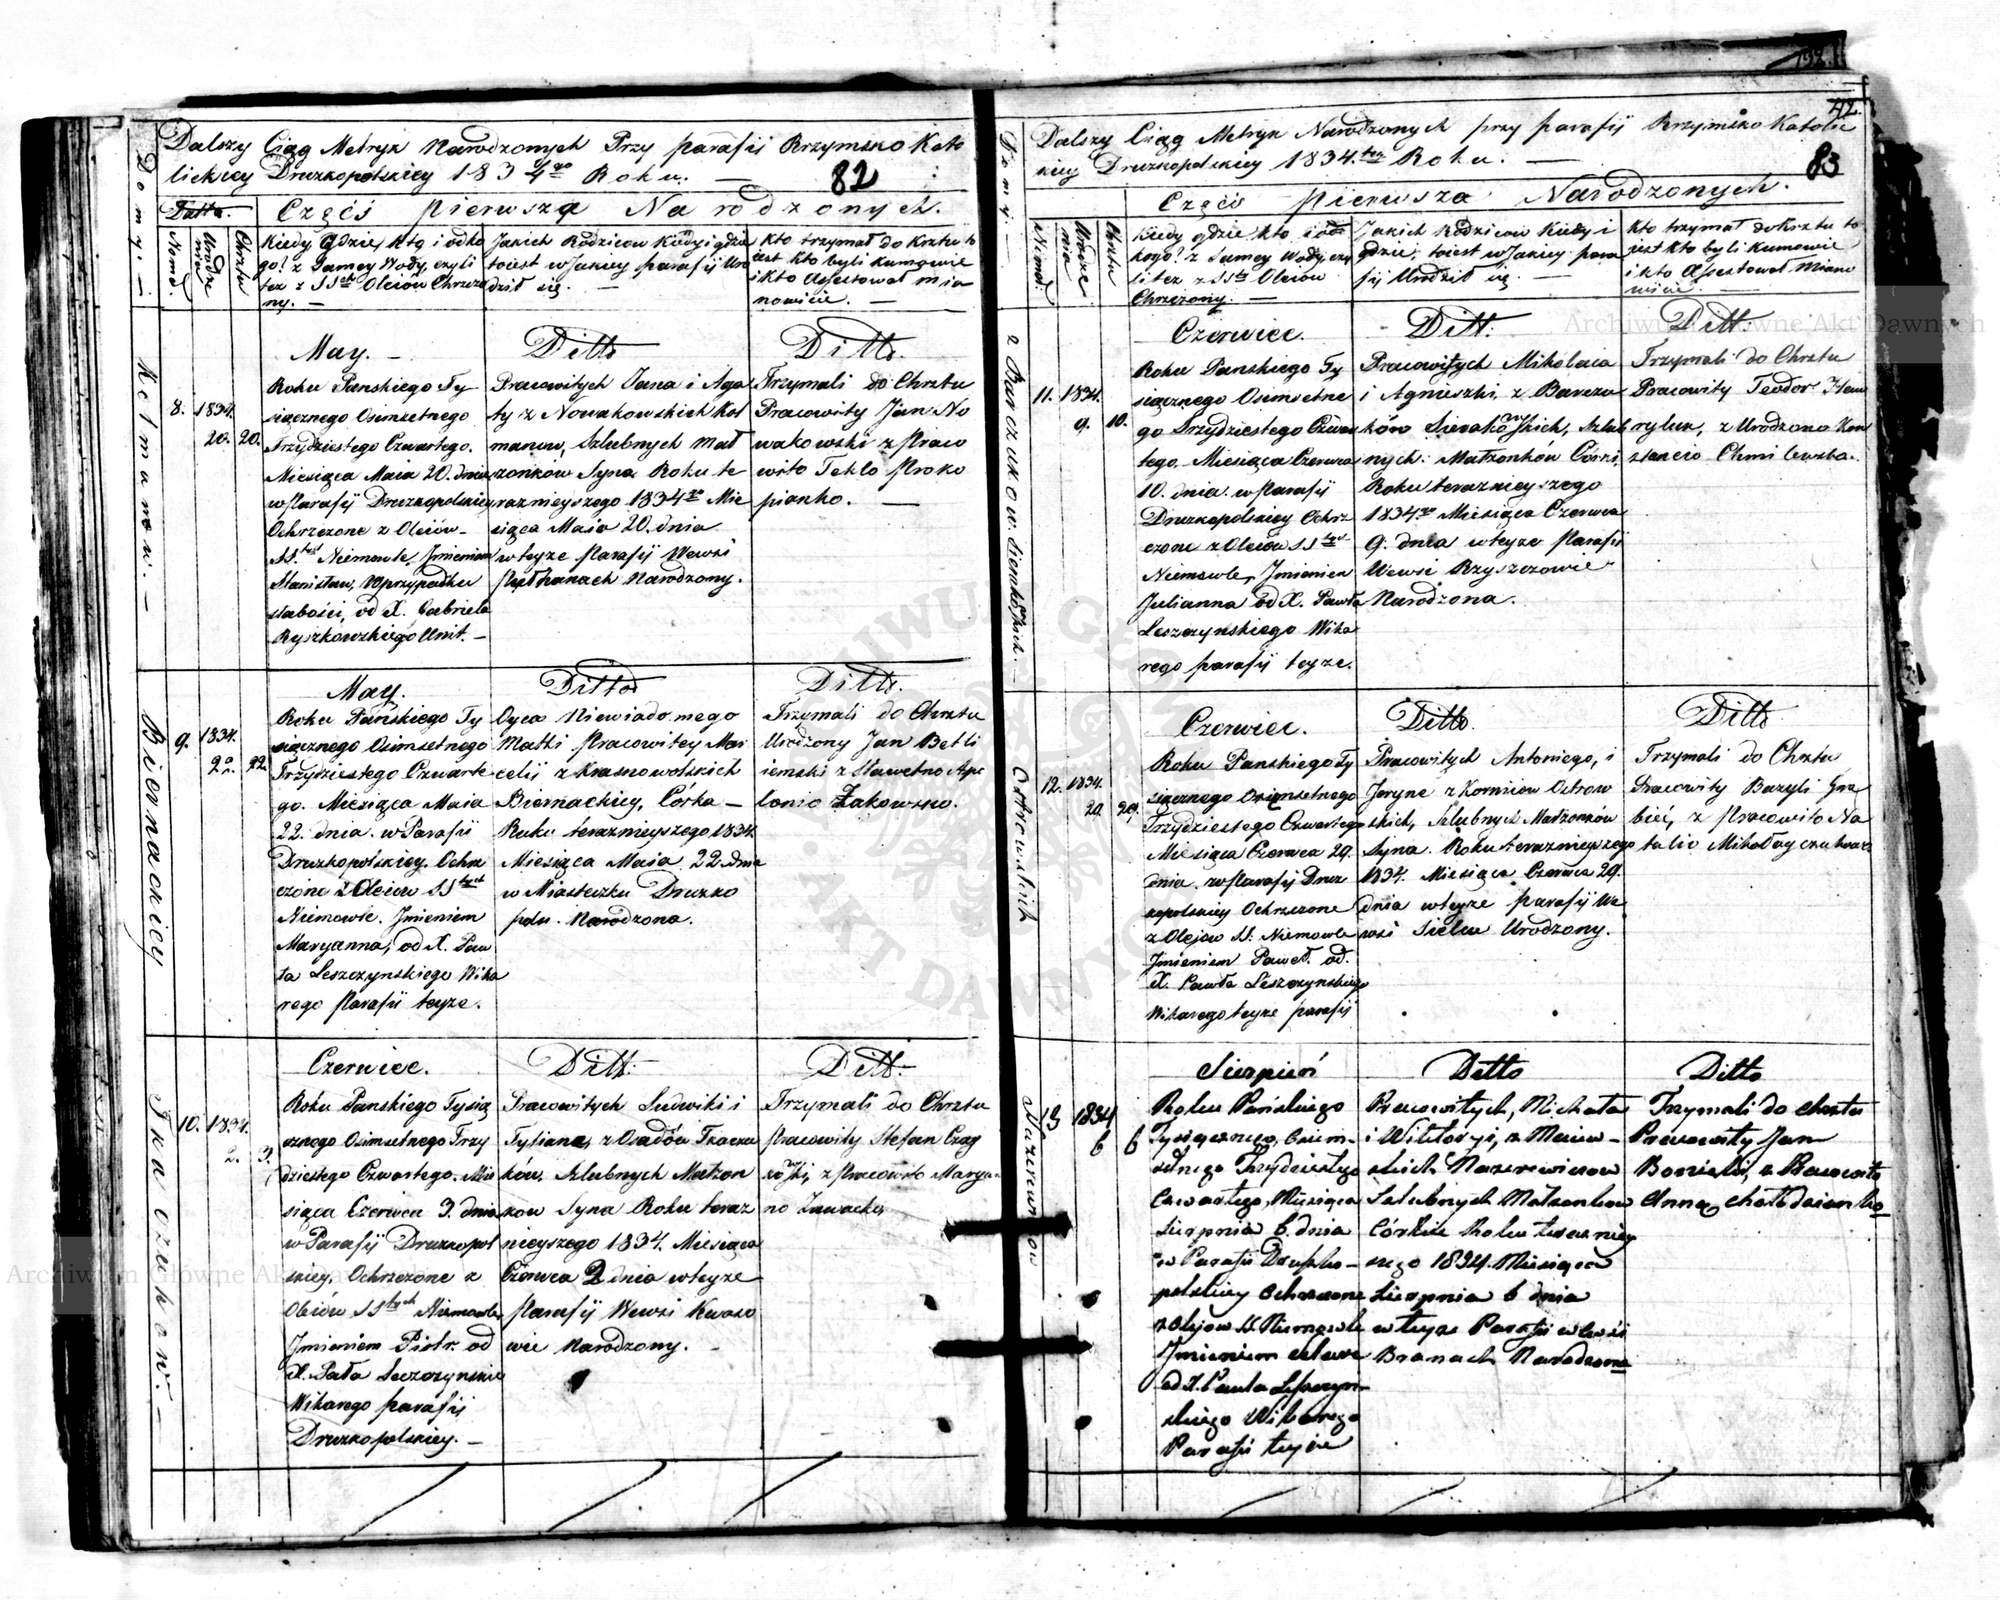 Dalszy Ciąg Metryk Narodzonych Przy parafij Rrzymsko Kato
lickiey Druzkopolskiey 1834go Roku. —
82
Ditto.
Część pierwsza Narodzonych.
Domy.
Numer.
Urodze
nia
Chrztu
Kiedy gdzie, kto i odko
go? z Samey Wody, czyli
tez z SStch Oleiów Chrzczo
ny. —
Jakich Rodzicow Kiedy i gdzie
toiest w Jakiey parafij Uro
dził się. —
Kto trzymał do Krztu to
iest kto byli Kumowie
i kto Assestował mia
nowicie. —
Kolmanow. —
8.
1834.
20.
20.
May. —
Roku Panskiego Ty-
siącznego Osimsetnego
Trzydziestego Czwartego.
Miesiąca Maia 20. dnia
w Parafij Druzkopolskiey
Ochrzczone z Oleiów—
SS.tych Niemowle, Jmieniem
Stanisław, w przypadku
słabości, od X. Gabriela
Ryszkowskiego Unit. —
Ditto
Pracowitych Jana i Aga
ty z Nowakowskich Kol
manow, Szlubnych Mał
zonkow Syna Roku te
raznieyszego 1834go Mie
siąca Maia 20. dnia
w teyze Parafij Wewsi
narodzony.
Ditto.
Trzymali do Chrztu
Pracowity Jan No
wakowski z Praco
wito Teklo Proko
pianko. —
Biernackiey
9.
1834.
22.
22.
May.
Roku Pańskiego Ty
siącznego Osimsetnego
Trzydziestego Czwarte
go. Miesiąca Maia
22. dnia. w Parafij
Druzkopolskiey. Ochrz
czone z Oleiow SStych
Niemowle. Jmieniem
Maryanna, od X. Paw
ła Leszczynskiego Wika
rego Parafij teyze.
Ditto
Oyca Niewiadomego
Matki Pracowitey Mar
celii z Krasnowolskich
Biernackiey, Córka —
Roku teraznieyszego 1834.
Miesiąca Maia 22. dnia
w Miasteczku Druzko
polu. Narodzona.
Ditto.
Trzymali do Chrztu
Urodzony Jan Betli
iemski z Sławetno Apo
lonio Żakowsko.
Tkaczukow. —
10.
1834.
2.
3.
Czerwiec.
Roku Panskiego Tysią
cznego Osimsetnego Trzy
dziestego Czwartego. Mie
siąca Czerwca 3. dnia
w Parafij Druzkopol
skiey. Ochrzczone z
Oleiów SStych Niemowle
Jmieniem Piotr. od
X. Pała Leczczynskie
Wikarego parafij
Druzkopolskiey. —
Ditt.
Pracowitych Ludwiki i
Tytiana, z Osadów Tkaczu
ków. Szlubnych Małzon
kow Syna Roku teraz
nieyszego 1834. Miesiąca
Czerwca 2 dnia w teyze
Parafij Wewsi Kwaso
wie Narodzony. —
Ditt.
Trzymali do Chrztu
Pracowity Stefan
z Pracowito Marya
no Zawacko
42
Dalszy Ciąg Metryk Narodzonych przy parafij Rrzymsko Katolic
kiey Druzkopolskiey 1834.tego Roku. —
83
Część pierwsza Narodzonych.
Domy.
Numer.
Urodze
nia
Chrztu
Kiedy gdzie kto i od
kogo? z Samey Wody, czy
li tez z SStch Oleiów
Chrzczony. —
Jakich Rodzicow Kiedy i
gdzie, toiest w Jakiey para
fij Urodził się —
Kto trzymał do Krztu to
iest kto byli Kumowie
i kto Assestował Miano
wicie. —
11.
1834.
9.
10.
Czerwiec.
Roku Panskiego Ty
siącznego Osimsetne
go Trzydziestego Czwar
tego. Miesiąca Czerwca
10. dnia. w Parafij
Druzkopolskiey Ochrz
czone z Oleiów SStych
Niemowle, Jmieniem
Julianna od X. Pawła
Leszczynskiego Wika
rego parafij teyze.
Ditt.
Pracowitych Mikolaca
i Agnieszki z Barczu
ków Sierakowskich, Szlub
nych. Małzonków Córki,
Roku teraznieyszego
1834go Miesiąca Czerwca
9. dnia w teyze Parafii
Wewsi Rzyszczowie
Narodzona.
Ditt.
Trzymali do Chrztu
Pracowity Teodor Haw
ryluk, z Urodzono Kon
stancio Chmilewsko.
Ostrowskich
12.
1834.
20.
29.
Czerwiec.
Roku Panskiego Ty
siącznego Osiemsetnego
Trzydziestego Czwartego
Miesiąca Czerwca 29.
dnia. w Parafij Druz
kopolskiey Ochrzczone
z Olejow SS. Niemowle
Jmieniem Paweł. od.
X. Pawła Leszczynskiego
Wikarego teyze parafij
Ditto.
Pracowitych Antoniego, i
Jeryne z Korniow Ostrow
skich, Szlubnych Małzonków
Syna. Roku teraznieyszego
1834. Miesiąca Czerwca 29.
dnia w teyze parafij We
wsi Sielcu Urodzony.
Ditto
Trzymali do Chrztu
Pracowity Bazyli Gra
bie, z Pracowito Na
talio Mikołayczukowo
Nazerewiczow
13
1834
6
6
Sierpień
Roku Pańskiego
Tysiącznego Osim-
setnego Trzydziestego
Czwartego, Miesiąca
Sierpnia 6. dnia
w Parafii Druzko-
polskiey Ochrzczone
z Olejow SS. Niemowle
Jmieniem
od X. Pawla Leszczyn-
skiego Wikarego
Parafii teyże
Ditto
Pracowitych, Michała
i Wiktoryi, z Maiew-
skich Nazerewiczow
Szlubnych Małzonkow
Córka Roku teraźniey
szego 1834. Miesiąca
Sierpnia 6 dnia
w teyze Parafii w Wsi
Branach Narodzona
Ditto
Trzymali do chrztu
Pracowity Jan
Bonicki, z Pracowito
Anną Chołodzianko
Archiwum Główne Akt Dawnych
Archiwum Główne Akt Dawnych